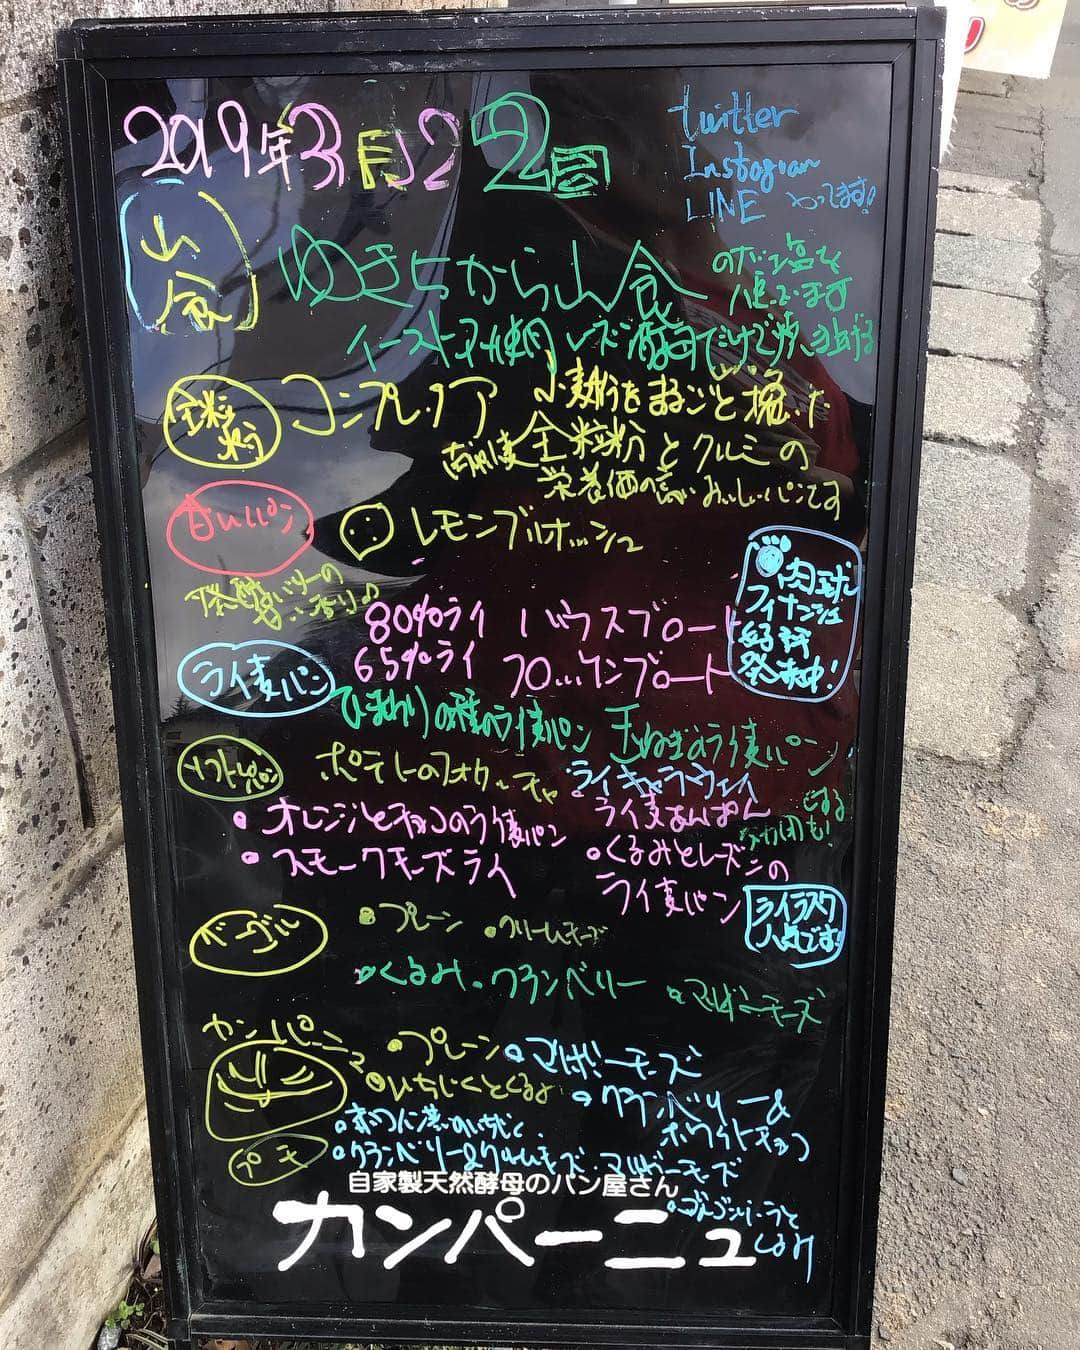 2019年3月22日
twitter
Instagram
LINE やってます!
山食
ゆきちから山食
イースト不使用 レーズン酵母だけで焼き上げる
全粒粉
コンプレッア 小麦粉をまるごと挽いた
全粒粉とクルミの
栄養価の高いおいしいパンです
甘いパン
レモンブルオッシュ
発酵バターの
いい香り♪
肉球
フィナンシェ
好評
発売中!
80%ライ ハウスブロート
65%ライ フロッケンブロート
ライ麦パン
ひまわりの種のライ麦パン 玉ねぎのライ麦パン
ソフトパン
ポテトのフォカッチャ
ライキャラウェイ
・オレンジとチョコのライ麦パン
ライ麦あんぱん
・スモークチーズライ
・くるみとレーズンの
ライ麦パン
ライラスク
人気です!
ベーグル
・プレーン ・クリームチーズ
・くるみ・クランベリー ・マルゲーチーズ
カンパーニュ
・プレーン ・マルゲーチーズ
・いちじくとくるみ
・クランベリー&
ホワイトチョコ
・赤ワイン漬けいちじく
プチ
・クランベリー&クリームチーズ・マルゲーチーズ
自家製天然酵母のパン屋さん
・ゴルゴンゾーラと
くるみ
カンパーニュ